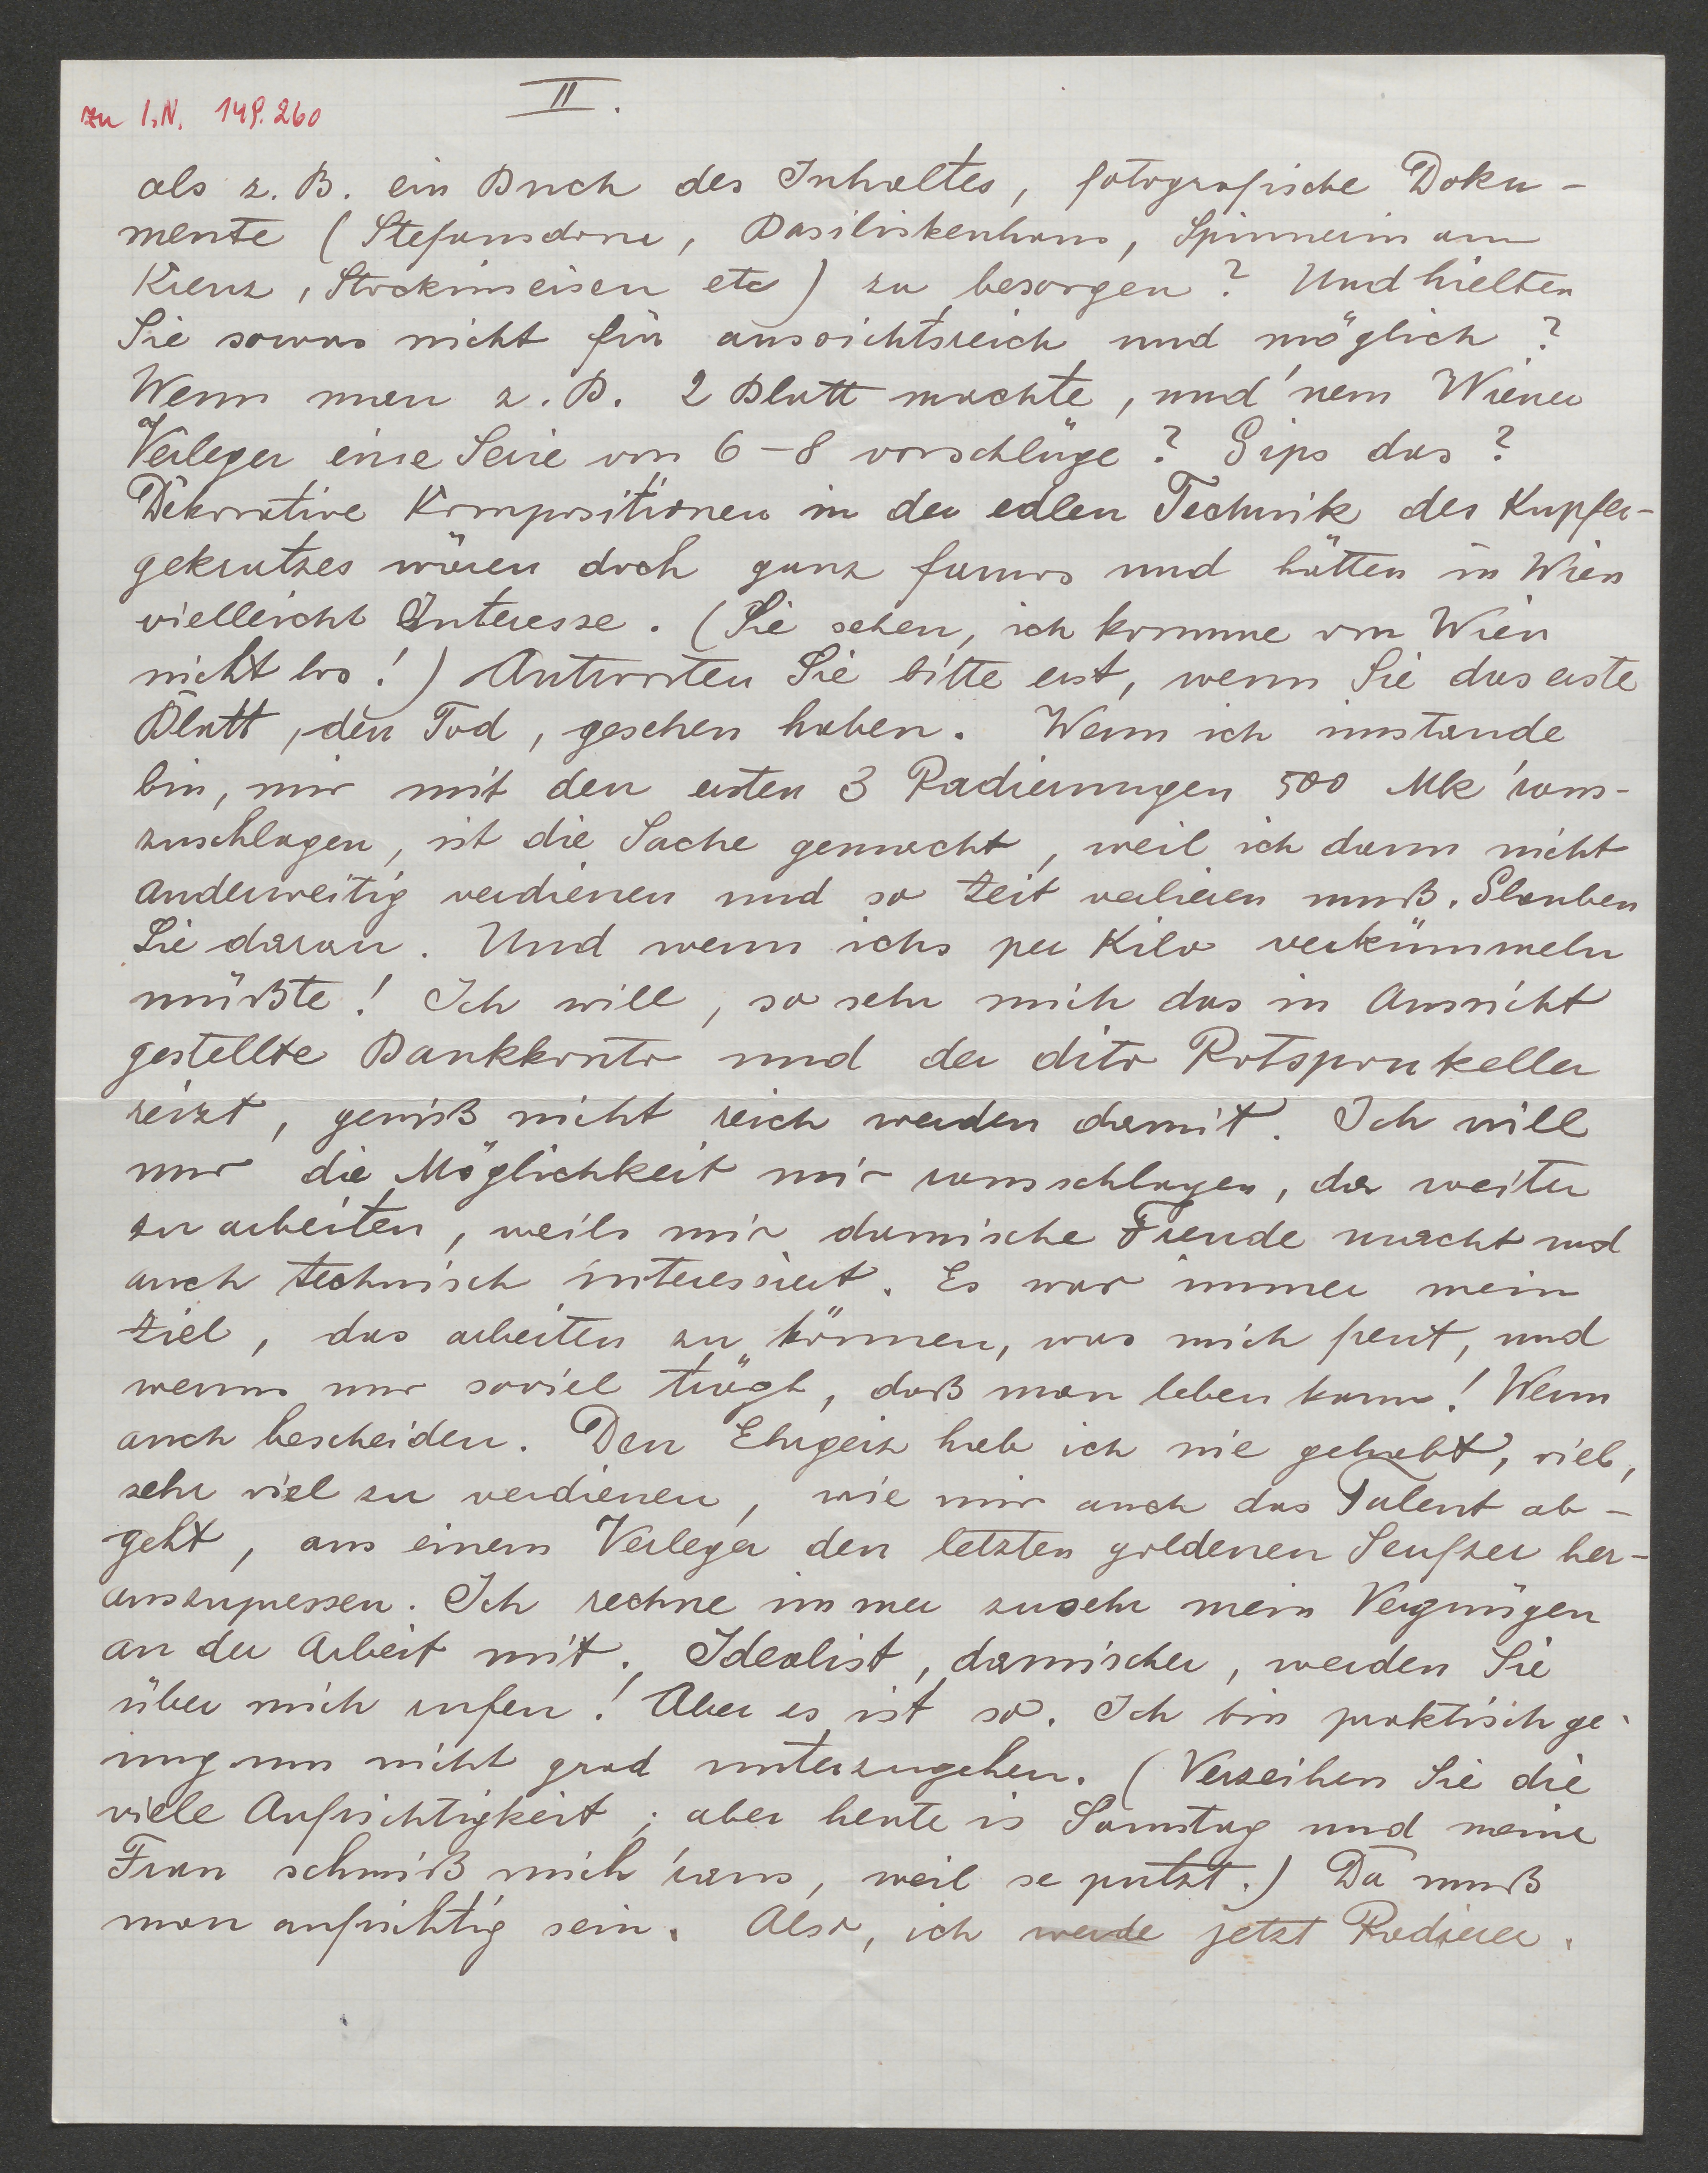 zu I.N. 149.260
II.
als z. B. ein Buch des Inhaltes, fotografische Doku-
mente (Stefansdom, Basiliskenhaus, Spinnerin am
Kreuz, Stockimeisen etc) zu besorgen? Und hielten
Sie sowas nicht für aussichtsreich und möglich?
Wenn man z. B. 2 Blatt machte, und 'nem Wiener
Verleger eine Serie von 6-8 vorschlüge? Gips das?
Dekorative Kompositionen in der edlen Technik des Kupfer-
gekratzes wären doch ganz famos und hätten in Wien
vielleicht Interesse. (Sie sehen, ich komme von Wien
nicht los!) Antworten Sie bitte erst, wenn Sie das erste
Blatt, den Tod, gesehen haben. Wenn ich imstande
bin, mir mit den ersten 3 Radierungen 500 Mk 'raus-
zuschlagen, ist die Sache gemacht, weil ich dann nicht
anderweitig verdienen und so Zeit verlieren muß. Glauben
Sie daran. Und wenn ichs per Kilo verkümmeln
müßte! Ich will, so sehr mich das in Aussicht
gestellte Bankkonto und der dito Rotsponkeller
reizt, gewiß nicht reich werden damit. Ich will
nur die Möglichkeit mir rausschlagen, da weiter
zu arbeiten, weils mir damische Freude macht und
auch technisch interessiert. Es war immer mein
Ziel, das arbeiten zu können, was mich freut, und
wenns nur soviel trägt, daß man leben kann! Wenn
auch bescheiden. Den Ehrgeiz hab ich nie gehabt, viel,
sehr viel zu verdienen, wie mir auch das Talent ab-
geht, aus einem Verleger den letzten goldenen Seufzer her-
auszupressen. Ich rechne immer zusehr mein Vergnügen
an der Arbeit mit. Idealist, damischer, werden Sie
über mich rufen! Aber es ist so. Ich bin praktisch ge-
nug um nicht grad unterzugehen. (Verzeihen Sie die
viele Aufrichtigkeit; aber heute is Samstag und meine
Frau schmiß mich 'raus, weil se putzt.) Da muß
man aufrichtig sein. Also, ich werde jetzt Radierer.